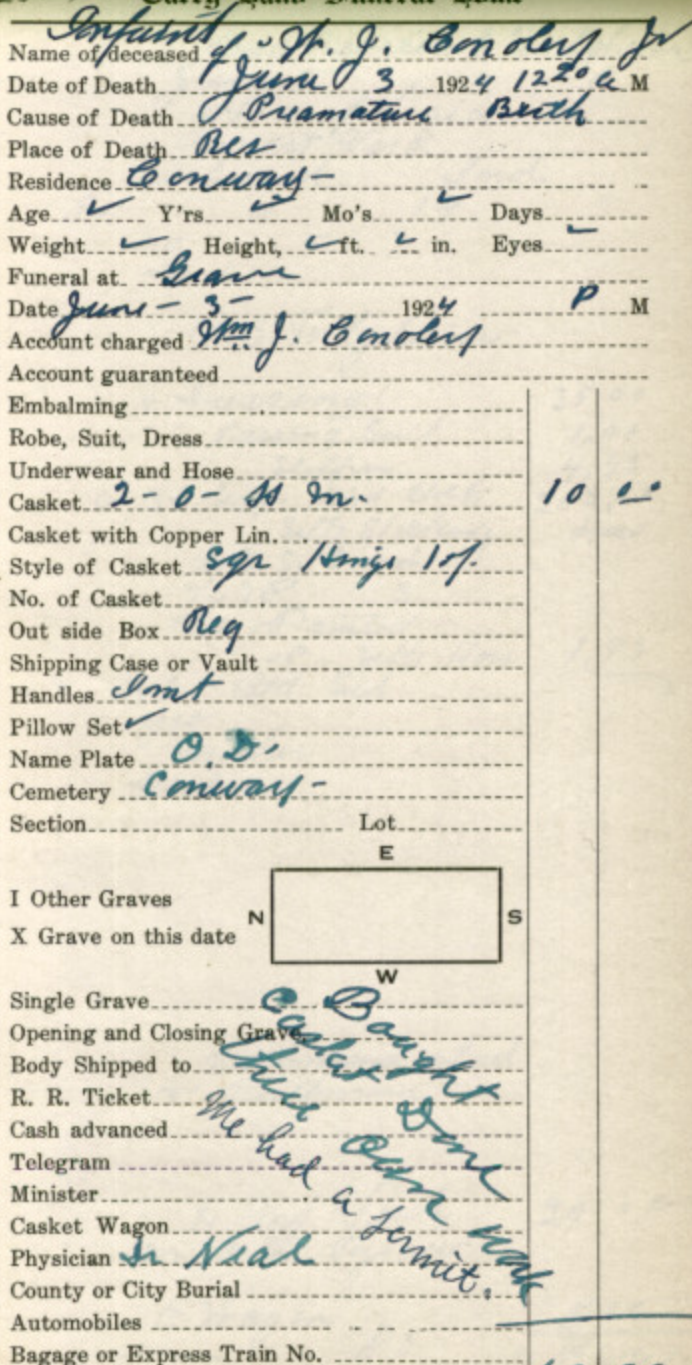 Infaint of W. J. Conoley Jr
Name of deceased
Date of Death June 3 1924 12 20 a M
Cause of Death Preamature Birth
Place of Death Res
Residence Conway-
Age ✓ Y'rs ✓ Mo's ✓ Days
Weight ✓ Height, ✓ ft. ✓ in. Eyes ✓
Funeral at Grave
Date June - 3 - 1924 P M
Account charged Wm J. Conoley
Account guaranteed
Embalming
Robe, Suit, Dress
Underwear and Hose
Casket 2-0- 10 00
Casket with Copper Lin.
Style of Casket Sqr
No. of Casket
Out side Box Reg
Shipping Case or Vault
Handles
Pillow Set ✓
Name Plate O.D.
Cemetery Conway-
Section Lot
E
I Other Graves
N S
X Grave on this date
W
Single Grave
Opening and Closing Grave
Body Shipped to
R. R. Ticket
Cash advanced
Telegram
Minister
Casket Wagon
Physician Dr Neal
County or City Burial
Automobiles
Bagage or Express Train No.
Bought
Casket Done
thire Own work
We had a permit.